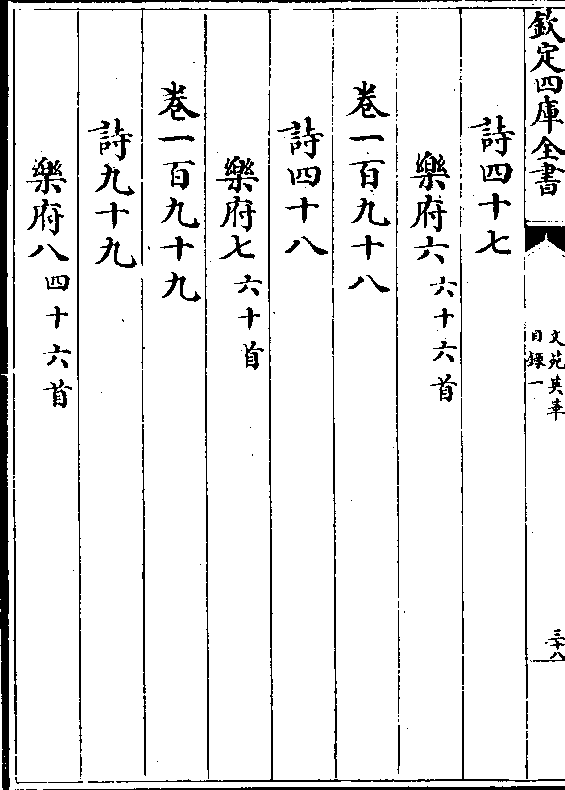 欽定四庫全書
文苑英華
目錄一
三十八
詩四十七
樂府六六十六首
卷一百九十八
詩四十八
樂府七六十首
卷一百九十九
詩九十九
樂府八四十六首